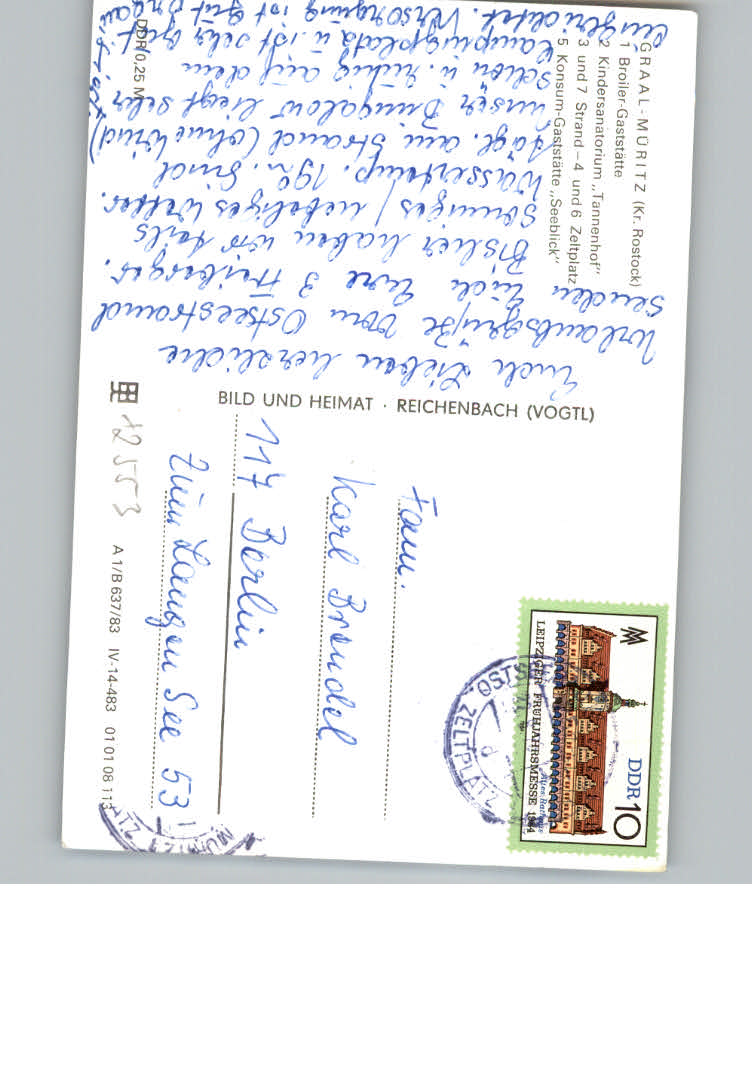 GRAAL-MÜRITZ (Kr. Rostock)
1 Broiler-Gaststätte
2 Kindersanatorium „Tannenhof"
3 und 7 Strand – 4 und 6 Zeltplatz
5 Konsum-Gaststätte „Seeblick"
Euch Lieben herzliche
Urlaubsgrüße vom Ostseestrand
senden Euch Eure 3 Freiberger.
Bisher haben wir teils
sonniges / nebeliges Wetter.
Wassertemp. 19°. Sind
tägl. am Strand (ohne Wind)
Unser Bungalow liegt sehr
schön u. ruhig auf dem
Campingplatz u. ist sehr gut
eingerichtet. Versorgung ist gut
DDR/0,25 M
BILD UND HEIMAT · REICHENBACH (VOGTL)
Fam.
Karl Brendel
117 Berlin
Zum Langen See 53
12553
A 1/B 637/83 IV-14-483 01 01 08 113
DDR 10
Altes Rathaus
LEIPZIGER FRÜHJAHRSMESSE 1984
OSTS
ZELTPLATZ
MÜRITZ